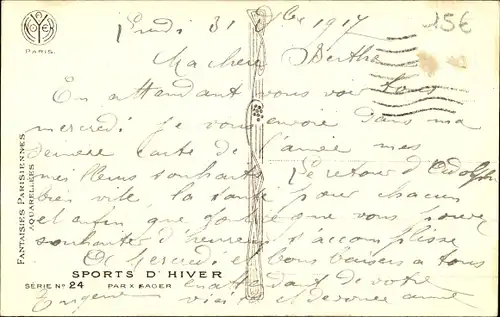 Lundi 31 Xbre 1917
15€
PARIS.
Ma chère Berthe
En attendant vous voir tous
mercredi je vous envoie dans ma
dernière carte de l'année mes
meilleurs souhaits
Le retour d'Adolphe
bien vite, la santé pour chacun
et enfin que tout ce que vous pouvez
souhaiter d'heureux s'accomplisse
A Mercredi et bons baisers à tous
en attendant de votre
Eugénie
et dévouée amie
FANTAISIES PARISIENNES
AQUARELLÉES
SPORTS D'HIVER
SÉRIE Nº 24 PAR X SAGER